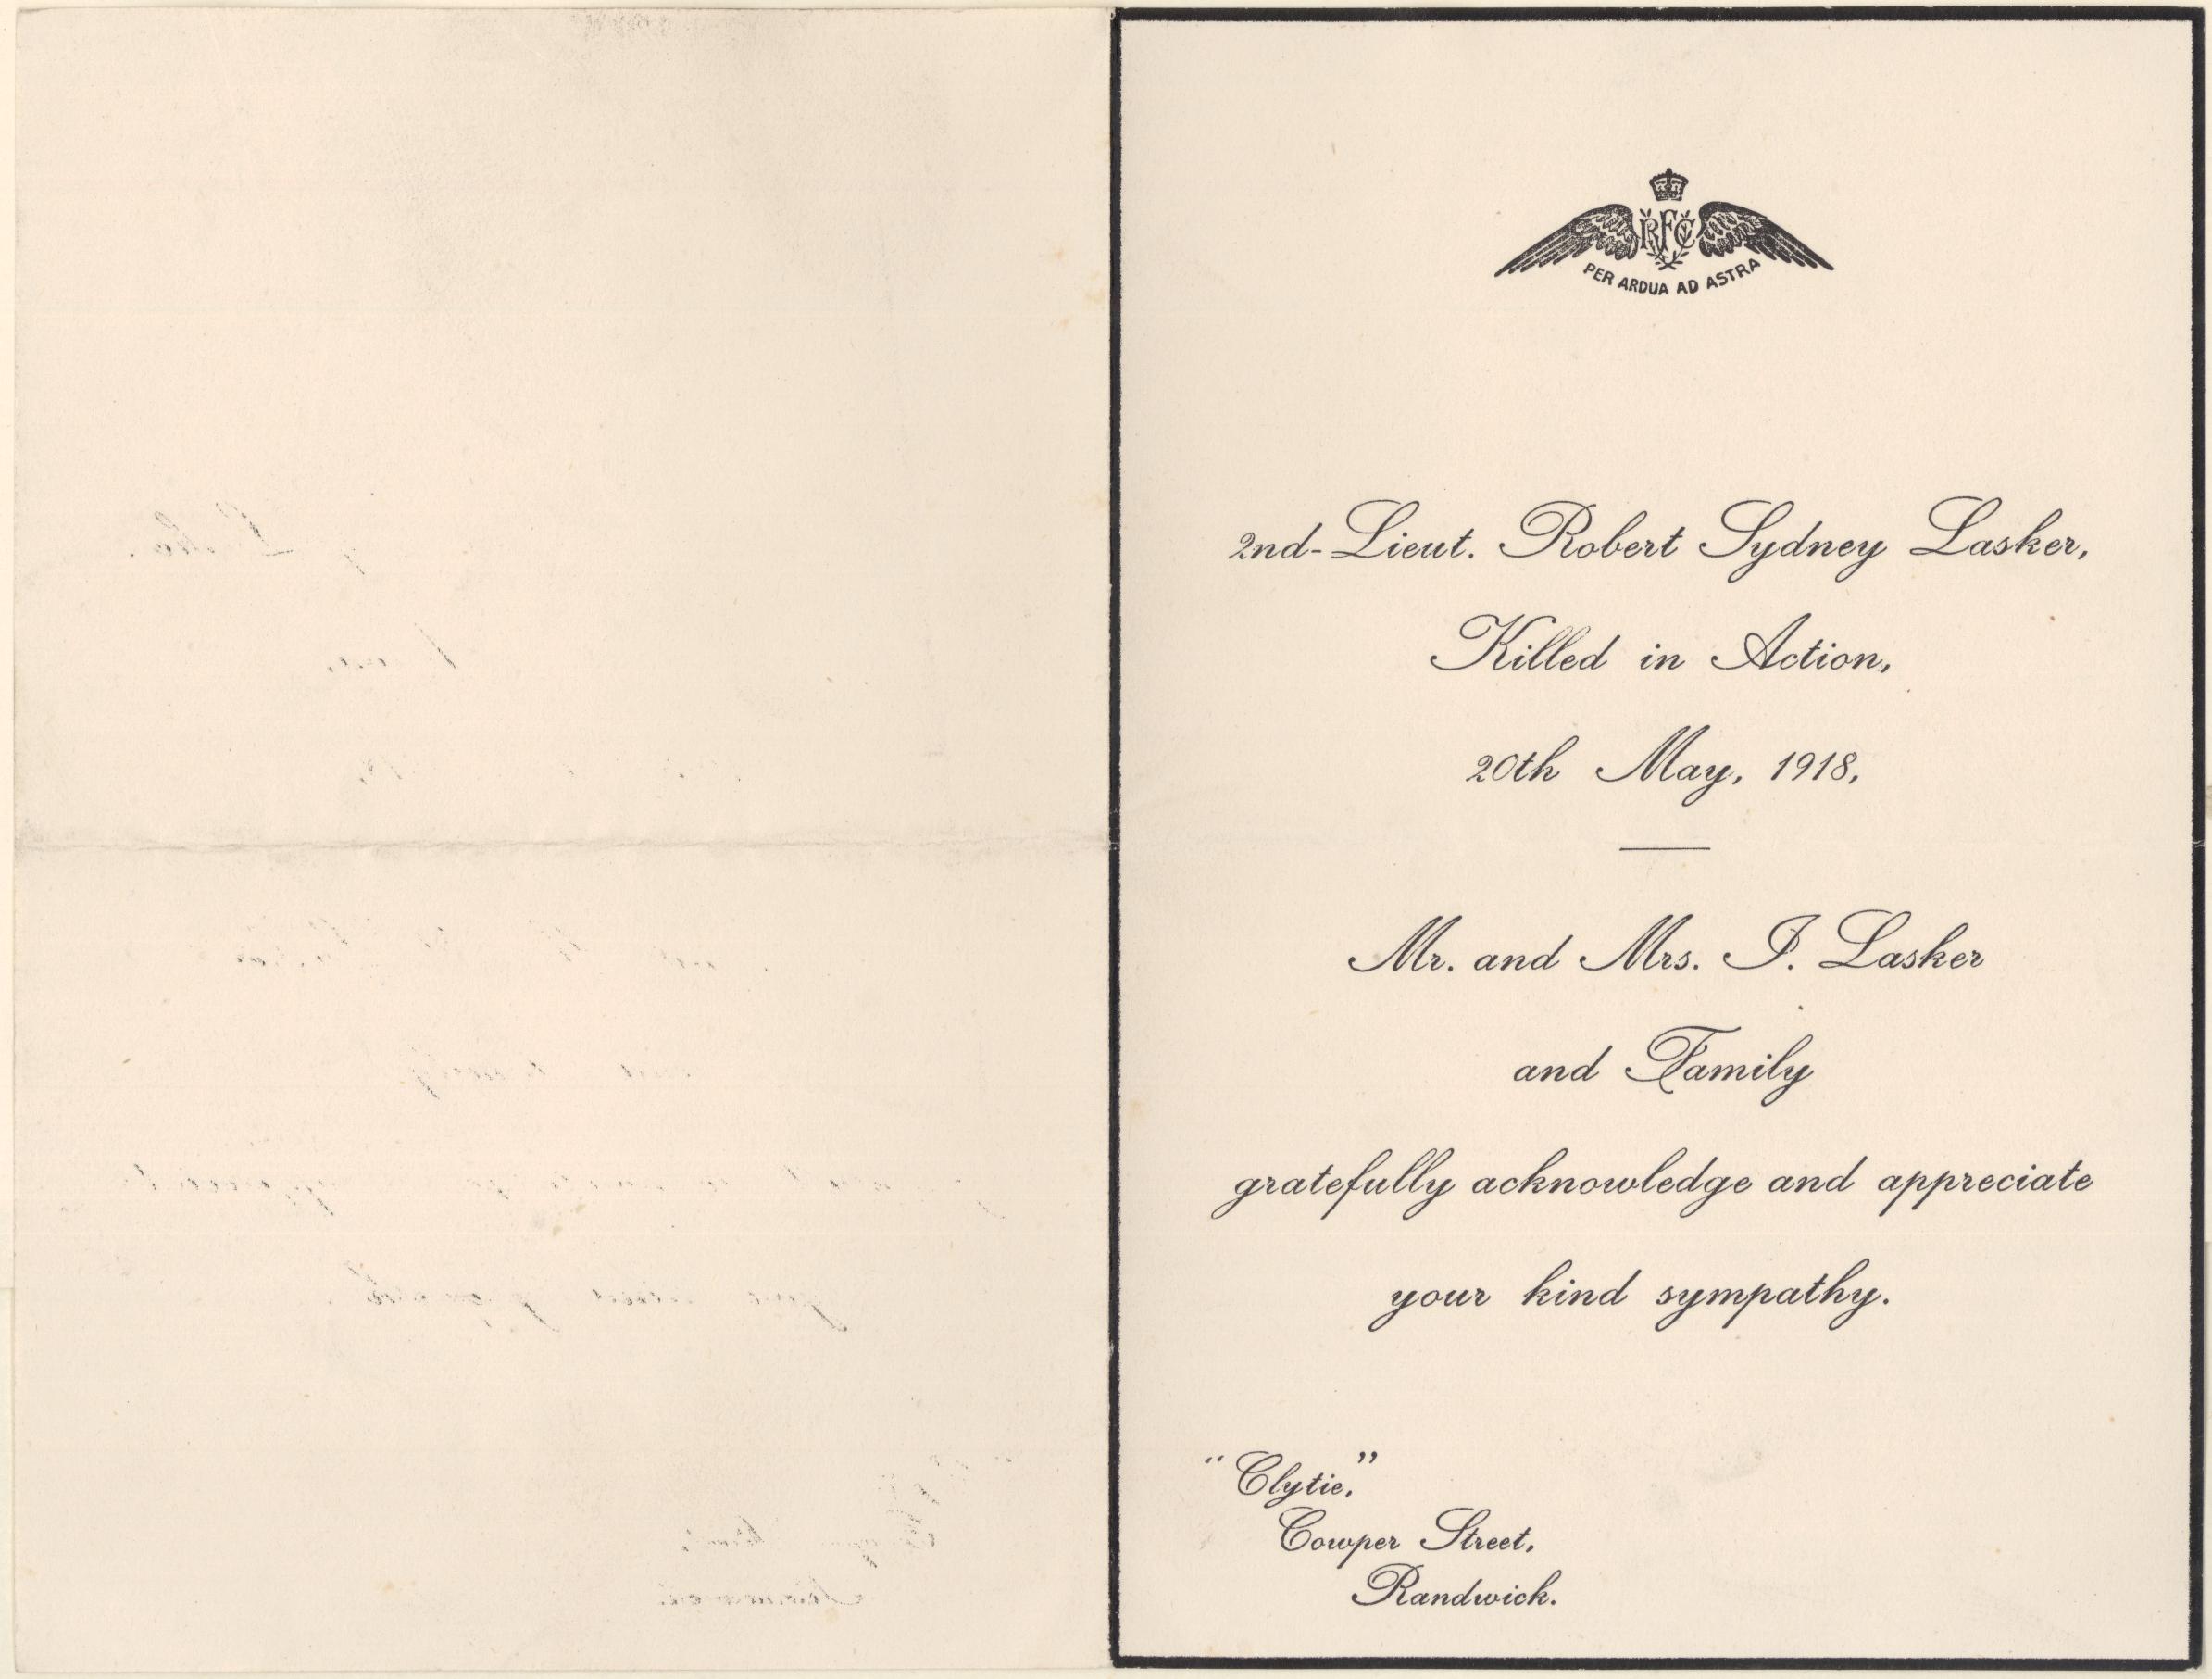 RFC
PER ARDUA AD ASTRA
2nd-Lieut. Robert Sydney Lasker,
Killed in Action,
20th May, 1918,
Mr. and Mrs. I. Lasker
and Family
gratefully acknowledge and appreciate
your kind sympathy.
"Clytie,"
Cowper Street,
Randwick.